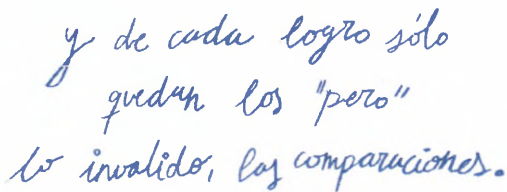 y de cada logro sólo
quedan los "pero"
lo invalido, las comparaciones.